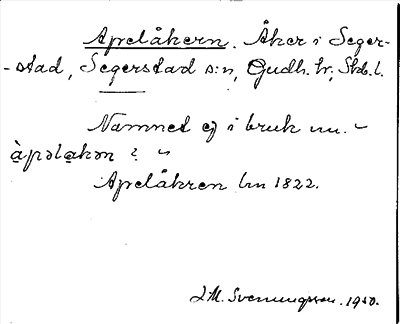 Apelåkern. Åker i Seger-
-stad, Segerstad s:n, Gudh. hr; Skb. l.
Namned ej i bruk nu. ~
àpəlakən ? ~
Apelåkren hn 1822.
J.M. Svenungsson. 1910.